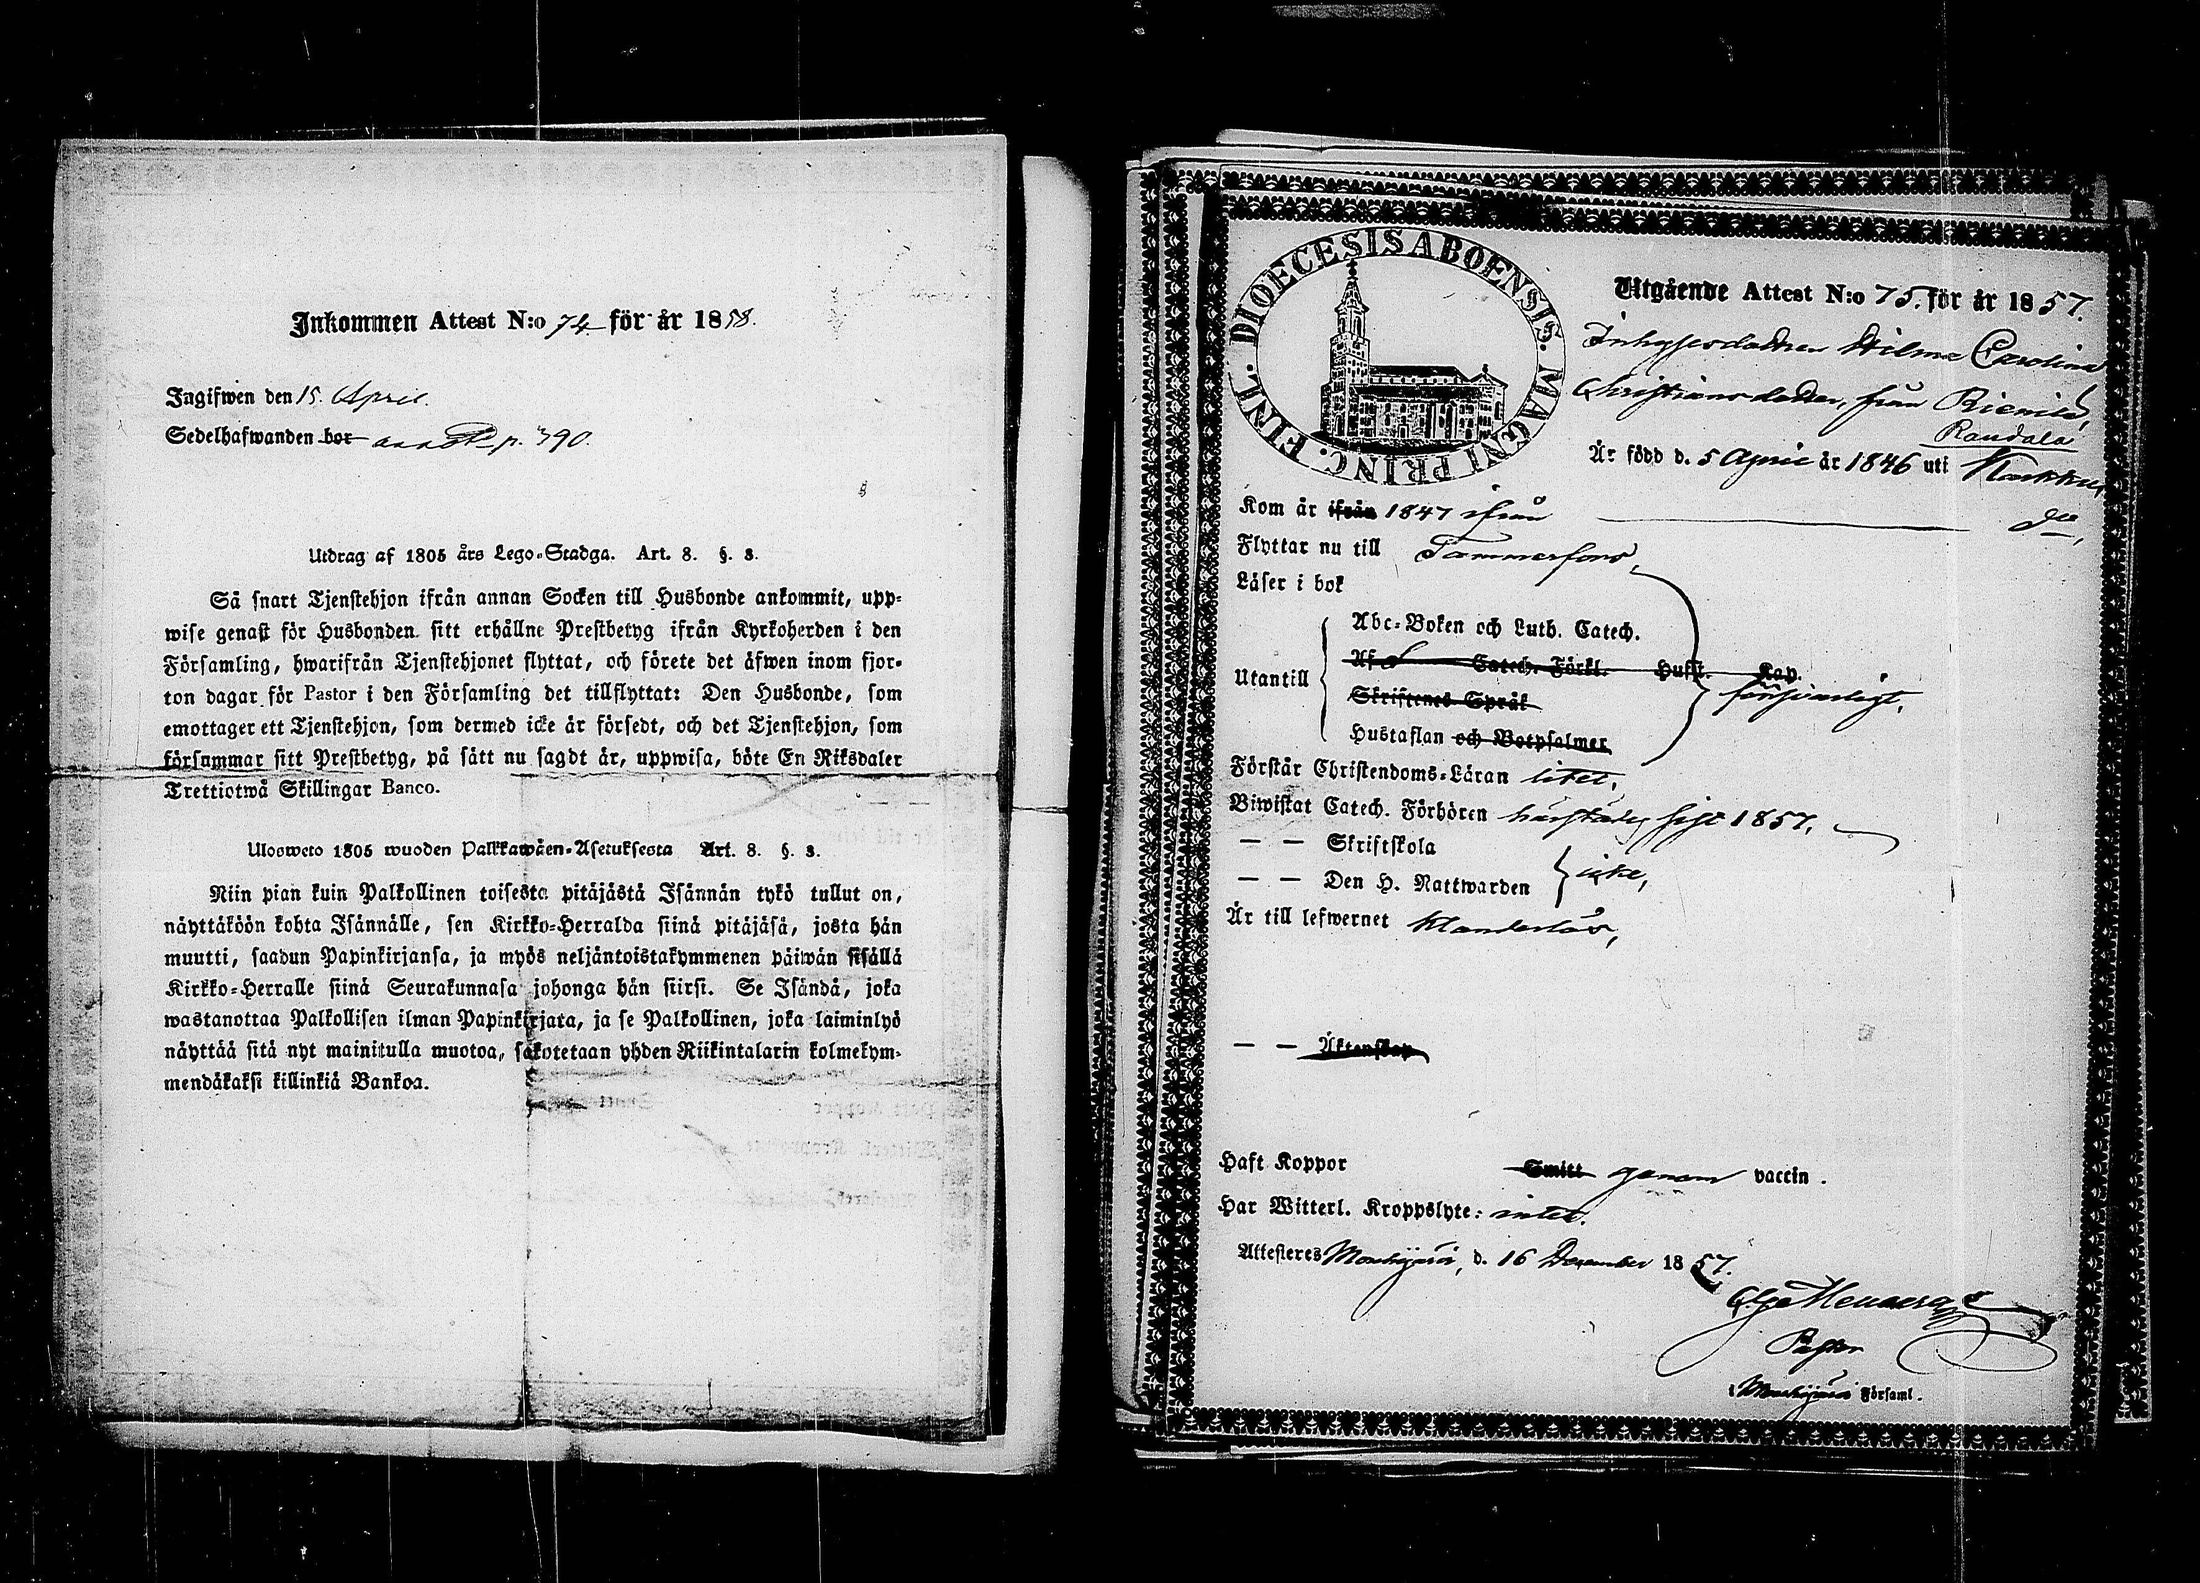 Inkommen Attest N:o 74 för år 1858.
Ingifwen den 15. April.
Sedelhafwanden bor p. 390.
Utdrag af 1805 års Lego-Stadga. Art. 8. §. 8.
Så snart Tjenstehjon ifrån annan Socken till Husbonde ankommit, upp-
wise genast för Husbonden sitt erhållne Prestbetyg ifrån Kyrkoherden i den
Församling, hwarifrån Tjenstehjonet flyttat, och förete det äfwen inom fjor-
ton dagar för Pastor i den Församling det tillflyttat: Den Husbonde, som
emottager ett Tjenstehjon, som dermed icke är försedt, och det Tjenstehjon, som
försummar sitt Prestbetyg, på sätt nu sagdt är, uppwisa, böte En Riksdaler
Trettiotwå Skillingar Banco.
Ulosweto 1805 wuoden Palkkawäen-Asetuksesta Art. 8. §. 8.
Niin pian kuin Palkollinen toisesta pitäjästä Isännän tykö tullut on,
näyttäköön kohta Isännälle, sen Kirkko-Herralda siinä pitäjäsä, josta hän
muutti, saadun Papinkirjansa, ja myös neljäntoistakymmenen päiwän sisällä
Kirkko-Herralle siinä Seurakunnasa johonga hän siirsi. Se Isändä, joka
wastanottaa Palkollisen ilman Papinkirjata, ja se Palkollinen, joka laiminlyö
näyttää sitä nyt mainitulla muotoa, sakotetaan yhden Riikintalarin kolmekym-
mendäkaksi killinkiä Bankoa.
DIOECESIS ABOENSIS. MAGNI PRINC. FINL.
Utgående Attest N:o 75. för år 1857.
Inhysesdottren Wilma Carolina
Christiansdotter, från Rienila,
Raudala
Är född d. 5 April år 1846 uti Karkku,
Kom år ifrån 1847 ifrån d:o,
Flyttar nu till Tammerfors,
Läser i bok
Utantill
Abc-Boken och Luth. Catech.
Af Catech. Förkl. Hufst. Kap.
Skriftenes Språk
Hustaflan och Botpsalmer
försvarligt,
Förstår Christendoms-Läran litet,
Biwistat Catech. Förhören härstädes sist 1857,
— — Skriftskola
— — Den H. Nattwarden icke,
Är till lefwernet klanderlös,
— — Äktenskap
Haft Koppor Smitt genom vaccin.
Har Witterl. Kroppslyte: intet.
Attesteres Mouhijärvi, d. 16 December 1857.
Pastor
i Mouhijärvi Församl.